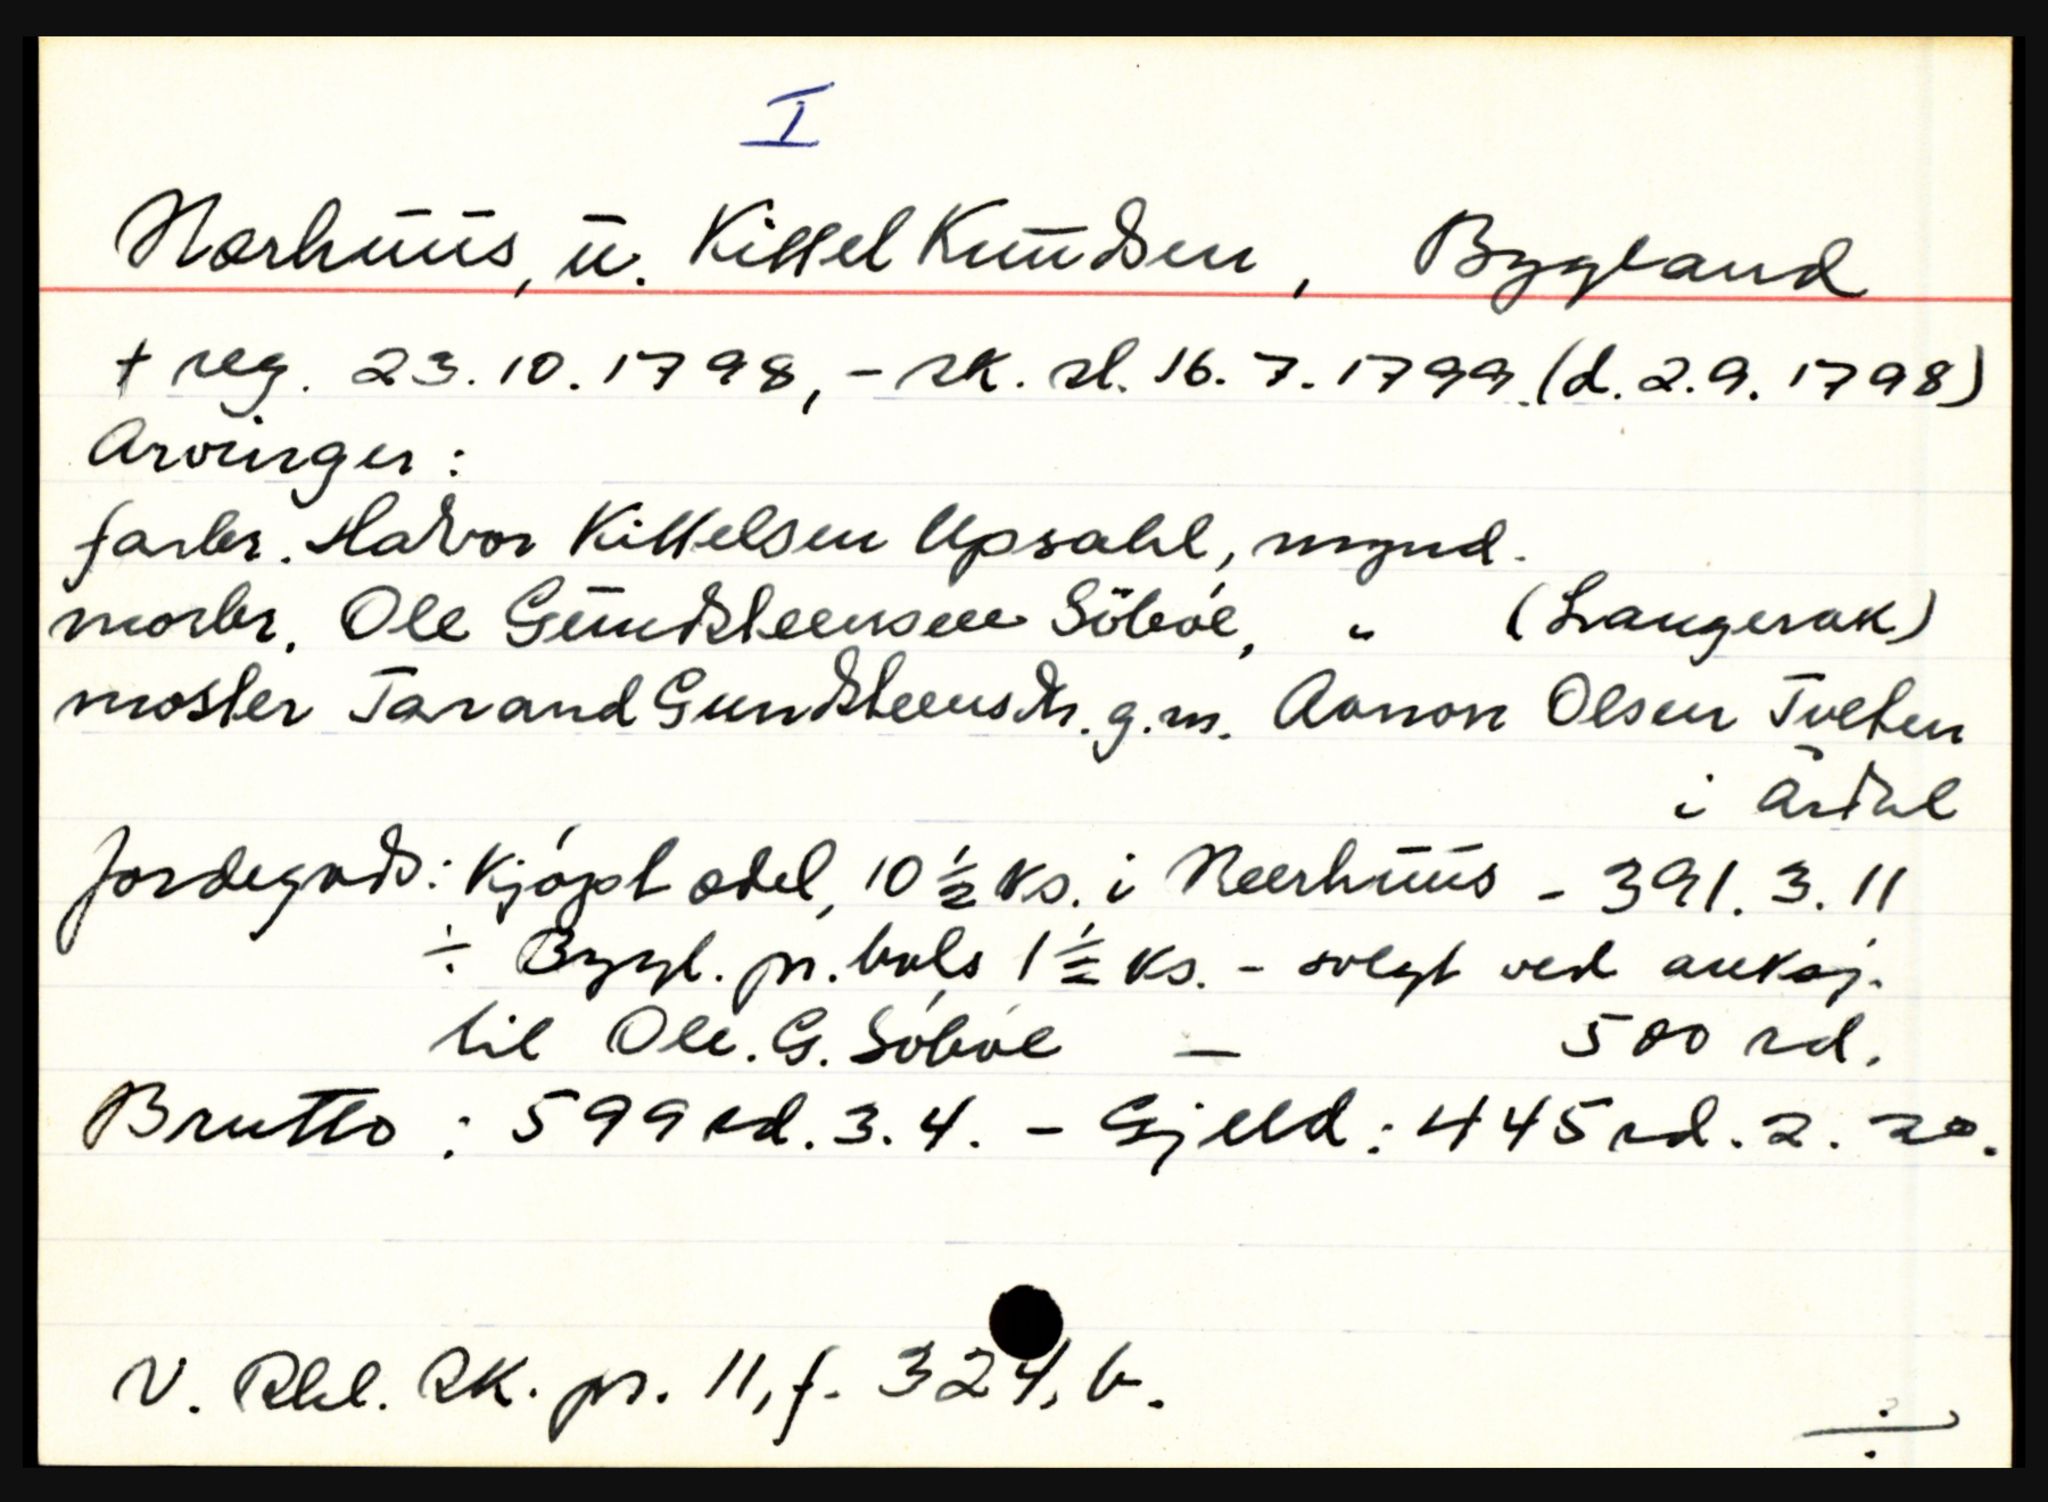 I
Nærhūūs, ū. Kittel Knūdsen, Bygland
† reg. 23.10.1798, - sk. sl. 16.7.1799. (d. 2.9.1798)
Arvinger:
farbr. Halvor Kittelsen Upsahl, mynd.
morbr. Ole Gūndsteensen Söbøe, " (Langerak)
moster Tarand Gundsteensdtr. g.m. Aanon Olsen Tveten
i Årdal
Jordegods: Kjøpt odel, 10 1/2 ks. i Neerhūūs - 391. 3. 11
÷ Bygl. pr. bols 1 1/2 ks. - solgt ved auksj.
til Ole. G. Söbøe — 500 rd.
Brutto: 599 rd. 3. 4. - Gjeld: 445 rd. 2. 20.
V. Rbl. SK. pr. 11, f. 324, b.
÷